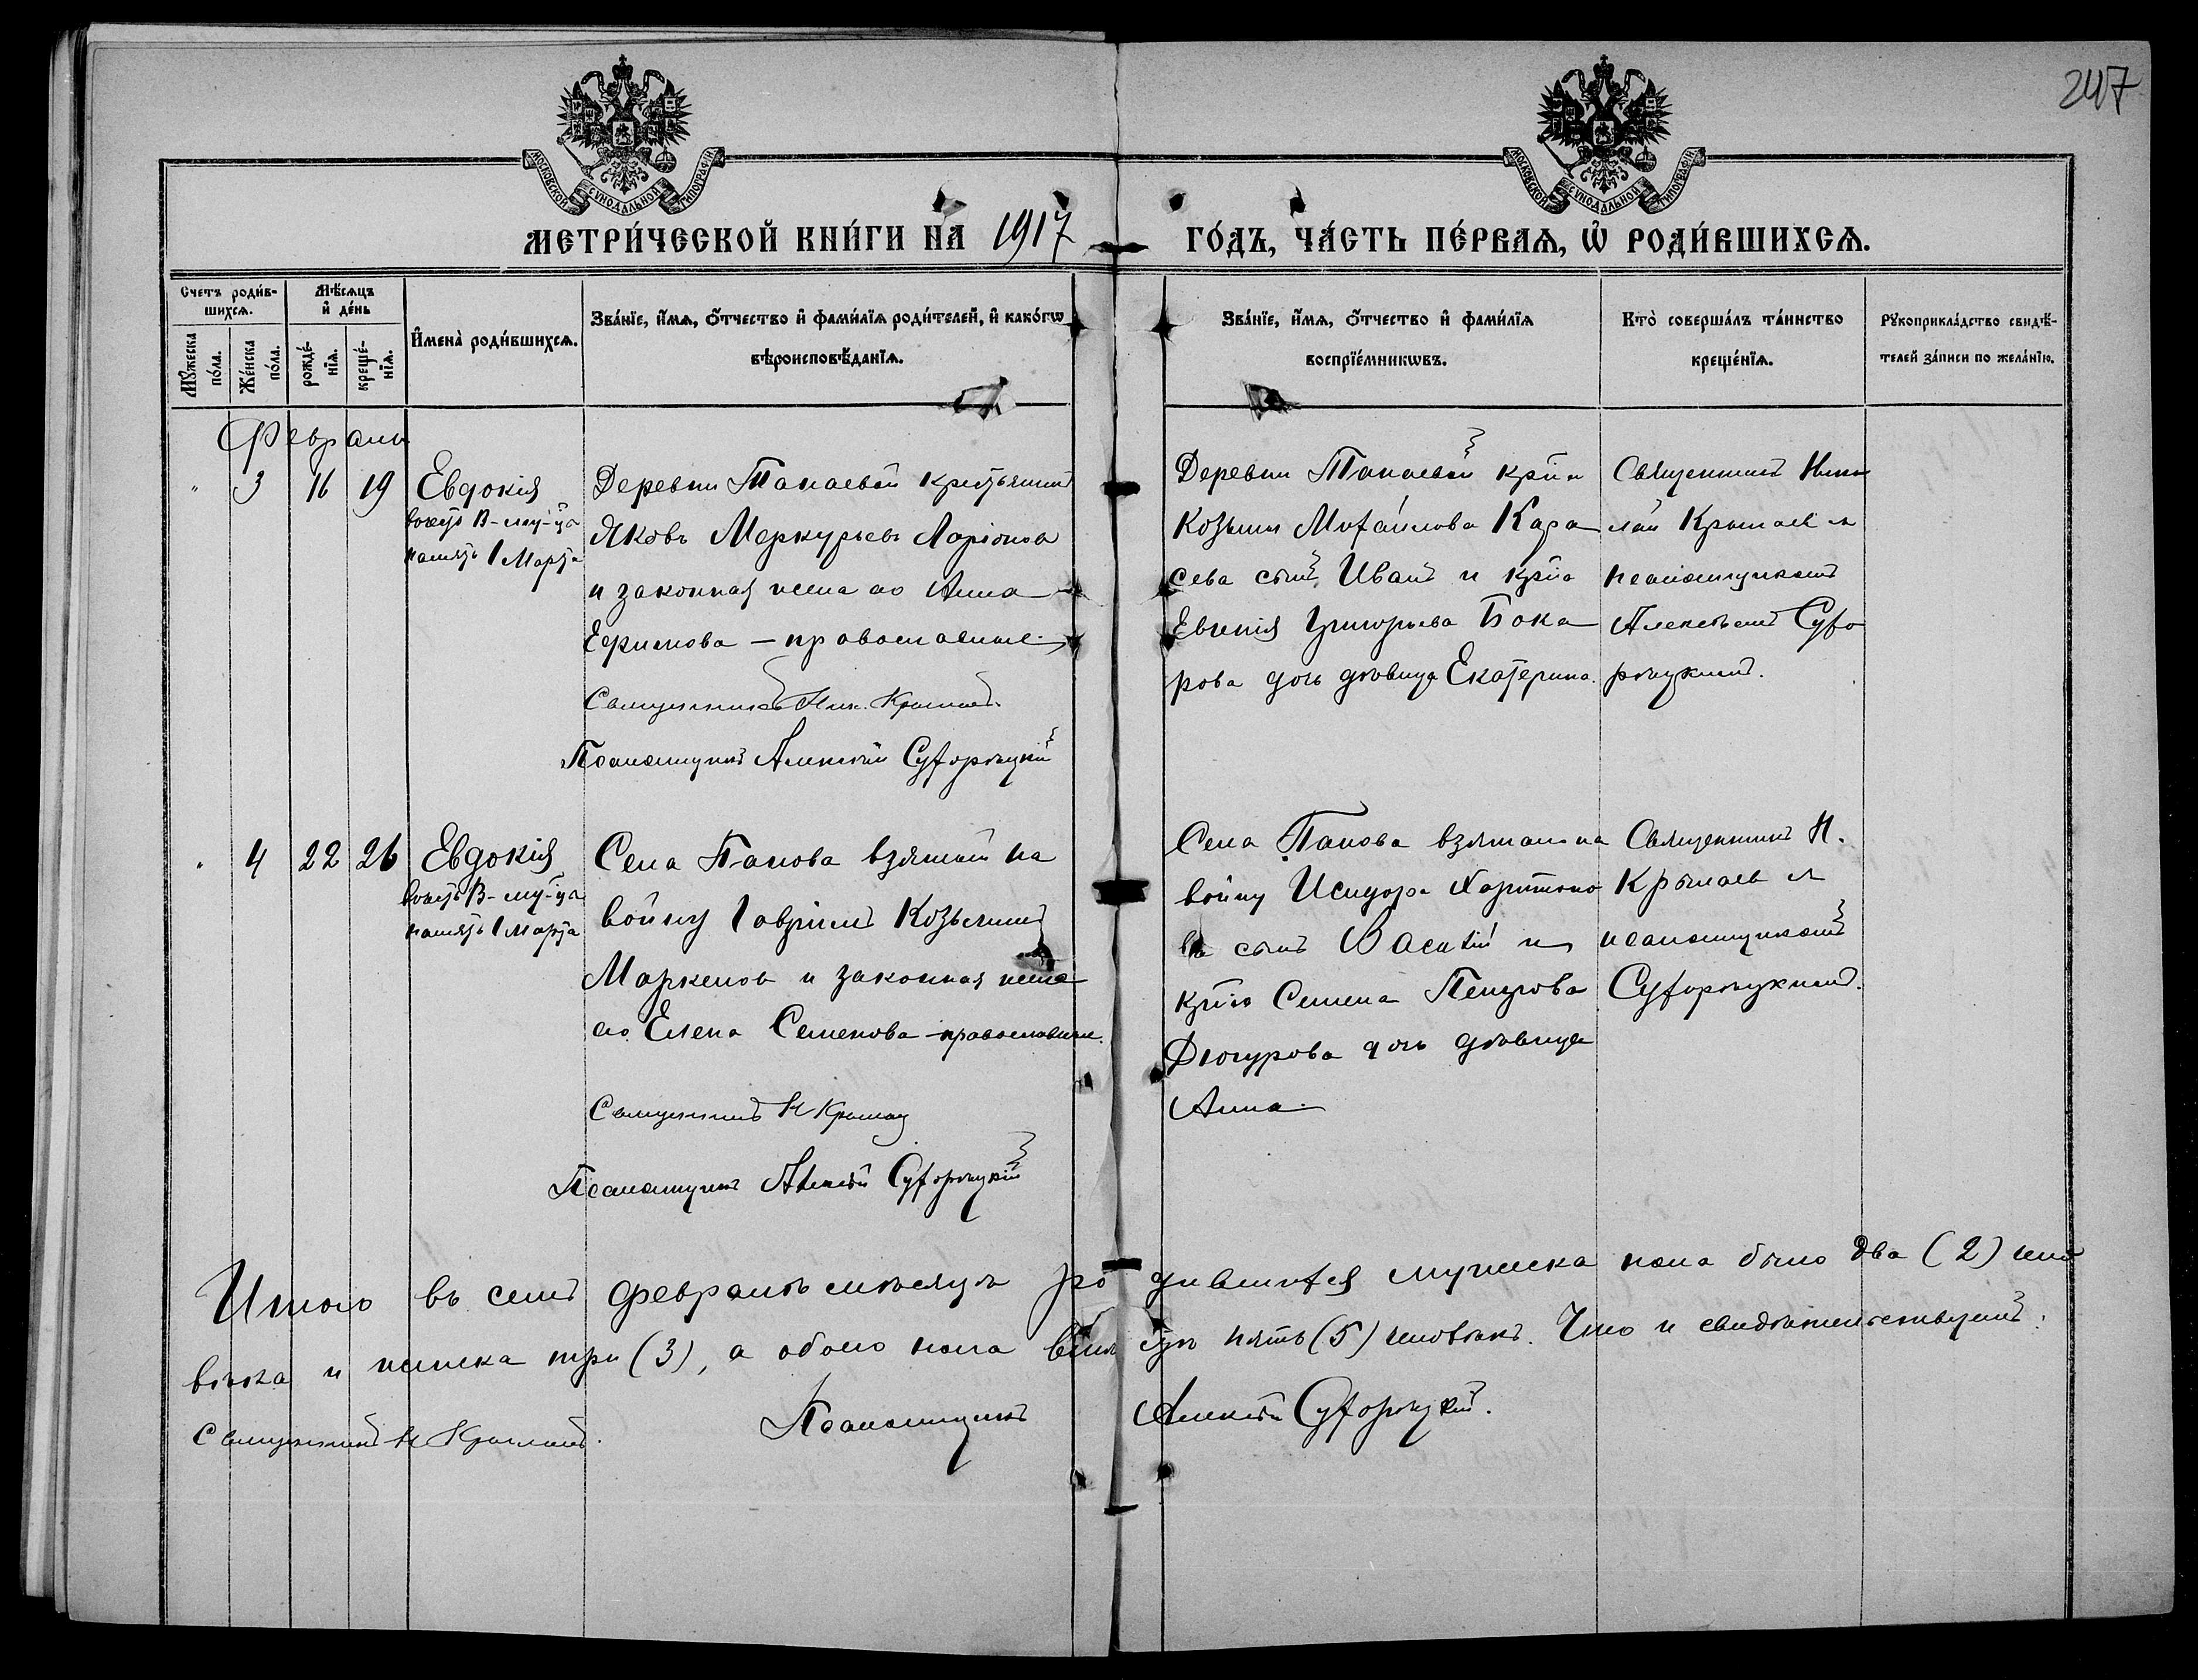 247
МОСКОВСКОЙ СѴНОДАЛЬНОЙ ТИПОГРАФІИ
МОСКОВСКОЙ СѴНОДАЛЬНОЙ ТИПОГРАФІИ
МЕТРИ́ЧЕСКОЙ КНИ́ГИ НА̀ 1917 ГО́ДЪ, ЧА́СТЬ ПЕ́РВАѦ, Ѡ҆ РОДИ́ВШИХСѦ.
Счетъ роди́в-
шихсѧ.
Мѣ́сѧцъ
и҆ де́нь
Мꙋ́жеска по́ла.
Же́нска по́ла.
рожде́-нїѧ.
креще́-нїѧ.
И҆мена̀ роди́вшихсѧ.
Зва́нїе, и҆́мѧ, ѻ҆́тчество и҆ фами́лїѧ роди́телей, и҆ како́гѡ
вѣроисповѣ́данїѧ.
Зва́нїе, и҆́мѧ, ѻ҆́тчество и҆ фами́лїѧ
воспрїе́мникѡвъ.
Кто̀ соверша́лъ та́инство
креще́нїѧ.
Рꙋкоприкла́дство свидѣ́-
телей за́писи по жела́нїю.
Февраль
" 3 16 19 Евдокія
память 1 Марта
Деревни Танаевой крестьянинъ
Яковъ Меркурьевъ Ларіоновъ
и законная жена его Анна
Ефимова – православные.
Священникъ Ник. Крылаевъ.
Псаломщикъ Алексѣй Суходольскій
Деревни Танаевой кр-на
Козьмы Михайлова Кара
сева сынъ Иванъ и кр-на
Евгенія Григорьева Бока
рова дочь дѣвица Екатерина.
Священникъ Нико
лай Крылаевъ съ
псаломщикомъ
Алексѣемъ
" 4 22 26 Евдокія
память 1 Марта
Села Панова взятый на
войну Гавріилъ Козьминъ
Маркеловъ и законная жена
его Елена Семенова – православные.
Священникъ Н Крылаевъ
Псаломщикъ Алексѣй
Села Панова взятаго на
войну Исидора Харитоно
ва сынъ Василій и
кр-на Семена
дочь дѣвица
Анна.
Священникъ Н.
Крылаевъ съ
псаломщикомъ
Итого въ семъ Февралѣ мѣсяцѣ ро дившихся мужеска пола было два (2) чело
вѣка и женска три (3), а обоего пола вмѣ стѣ пять (5) человѣкъ. Что и свидѣтельствуемъ:
Священникъ Н Крылаевъ. Псаломщикъ Алексѣй